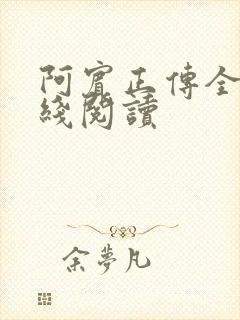 阿賓正傳全
綫閱讀
余夢凡